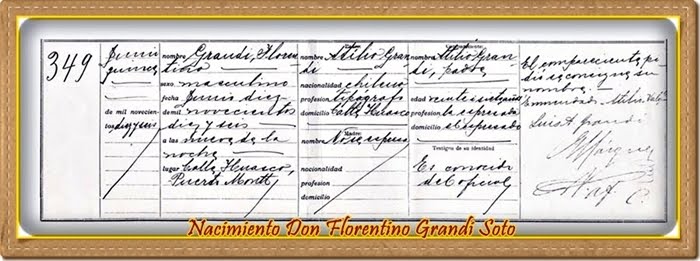 349
Junio
quince
de mil novecien-
tos diez y seis
nombre Grandi, Floren
tino
sexo masculino
fecha Junio diez
de mil novecientos
diez y seis
a las nueve de la
noche
lugar Calle Huasco,
Puerto Montt
nombre Atilio Gran
di
nacionalidad chilena
profesion tipógrafo
domicilio Calle Huasco
Madre:
nombre No se expresa
nacionalidad
profesion
domicilio
nombre Atilio Gran
di, padre
edad veinte i siete años
profesion la espresada
domicilio el espresado
Testigos de su identidad
Es conocido
del oficial
El compareciente pi-
dió se consigne su
nombre.
Enmendado
Luis A Grandi
Nacimiento Don Florentino Grandi Soto